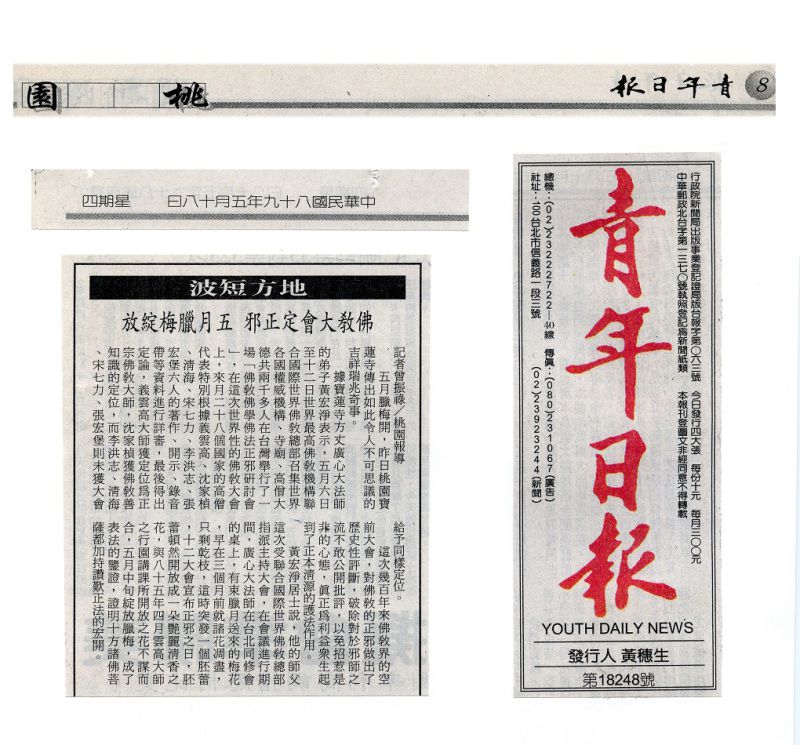 8 青年日報
桃園
中華民國八十九年五月十八日 星期四
行政院新聞局出版事業登記證局版台報字第〇六三號 今日發行四大張 每份十元 每月三〇〇元
中華郵政北台字第一三七〇號執照登記為新聞紙類 本報刊登圖文非經同意不得轉載
青年日報
總機:(02)23222722—40線 傳真:(080)231067(廣告)
(02)23923244(新聞)
社址:100台北市信義路一段三號
YOUTH DAILY NEWS
發行人 黃穗生
第18248號
地方短波
佛教大會定正邪 五月臘梅綻放
記者曾振祿/桃園報導
五月臘梅開,昨日桃園寶
蓮寺傳出如此令人不可思議的
吉祥瑞兆奇事。
據寶蓮寺方丈廣心大法師
的弟子黃宏淨表示,五月六日
至十二日世界最高佛教機構聯
合國際世界佛教總部召集世界
各國權威機構、寺廟、高僧大
德共兩千多人在台灣舉行了一
場「佛教佛學佛法正邪研討會
」,在這次世界性的佛教大會
上,來月二十八個國家的高僧
代表特別根據義雲高、沈家楨
、清海、宋七力、李洪志、張
宏堡六人的著作、開示、錄音
帶等資料進行詳審,最後得出
定論,義雲高大師獲定位為正
宗佛教大師,沈家楨獲佛教善
知識的定位,而李洪志、清海
、宋七力、張宏堡則未獲大會
給予同樣定位。
這次幾百年來佛教界的空
前大會,對佛教的正邪做出了
歷史性評斷,破除對於邪師之
流不敢公開批評,以免招惹是
非的心態,真正為利益眾生起
到了正本清源的護法作用。
黃宏淨居士說,他的師父
這次受聯合國際世界佛教總部
指派主持大會,在會議進行期
間,廣心大法師在台北同修會
的桌上,有束臘月送來的梅花
,早在三個月前就諸花凋盡,
只剩乾枝,這時突發一個胚蕾
,十二大會宣布正邪之日,胚
蕾頓然開放成一朵艷麗清香之
花,與八十五年四月雲高大師
之行園講課所開放之花不謀而
合,五月中旬綻放臘梅,成了
表法的鑒證,證明十方諸佛菩
薩都加持讚歎正法的宏開。